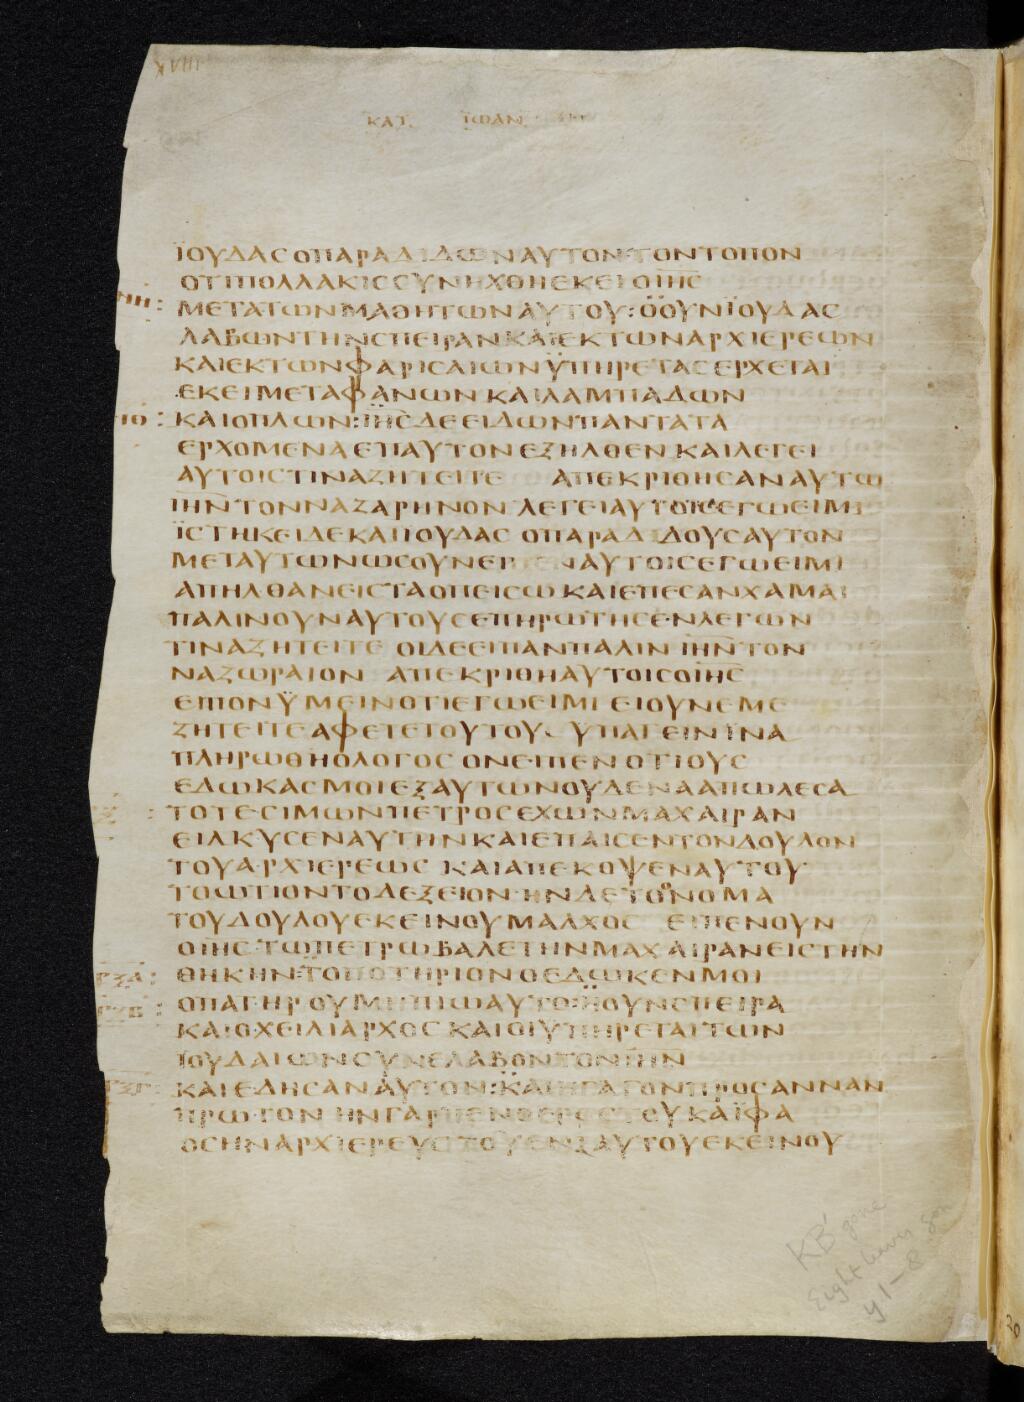 ΚΑΤ ΙΩΑΝ
ΪΟΥΔΑΣ Ο ΠΑΡΑΔΙΔΩΝ ΑΥΤΟΝ ΤΟΝ ΤΟΠΟΝ
ΟΤΙ ΠΟΛΛΑΚΙΣ ΣΥΝΗΧΘΗ ΕΚΕΙ Ο ΙΗΣ
ΜΕΤΑ ΤΩΝ ΜΑΘΗΤΩΝ ΑΥΤΟΥ : Ο ΟΥΝ ΪΟΥΔΑΣ
ΛΑΒΩΝ ΤΗΝ ΣΠΕΙΡΑΝ ΚΑΙ ΕΚ ΤΩΝ ΑΡΧΙΕΡΕΩΝ
ΚΑΙ ΕΚ ΤΩΝ ΦΑΡΙΣΑΙΩΝ ΫΠΗΡΕΤΑΣ ΕΡΧΕΤΑΙ
ΕΚΕΙ ΜΕΤΑ ΦΑΝΩΝ ΚΑΙ ΛΑΜΠΑΔΩΝ
ΚΑΙ ΟΠΛΩΝ : ΙΗΣ ΔΕ ΕΙΔΩΝ ΠΑΝΤΑ ΤΑ
ΕΡΧΟΜΕΝΑ ΕΠ ΑΥΤΟΝ ΕΞΗΛΘΕΝ ΚΑΙ ΛΕΓΕΙ
ΑΥΤΟΙΣ ΤΙΝΑ ΖΗΤΕΙΤΕ ΑΠΕΚΡΙΘΗΣΑΝ ΑΥΤΩ
ΙΗΝ ΤΟΝ ΝΑΖΑΡΗΝΟΝ ΛΕΓΕΙ ΑΥΤΟΙΣ ΕΓΩ ΕΙΜΙ
ΪΣΤΗΚΕΙ ΔΕ ΚΑΙ ΙΟΥΔΑΣ Ο ΠΑΡΑΔΙΔΟΥΣ ΑΥΤΟΝ
ΜΕΤ ΑΥΤΩΝ ΩΣ ΟΥΝ ΕΙΠΕΝ ΑΥΤΟΙΣ ΕΓΩ ΕΙΜΙ
ΑΠΗΛΘΑΝ ΕΙΣ ΤΑ ΟΠΕΙΣΩ ΚΑΙ ΕΠΕΣΑΝ ΧΑΜΑΙ
ΠΑΛΙΝ ΟΥΝ ΑΥΤΟΥΣ ΕΠΗΡΩΤΗΣΕΝ ΛΕΓΩΝ
ΤΙΝΑ ΖΗΤΕΙΤΕ ΟΙ ΔΕ ΕΙΠΑΝ ΠΑΛΙΝ ΙΗΝ ΤΟΝ
ΝΑΖΩΡΑΙΟΝ ΑΠΕΚΡΙΘΗ ΑΥΤΟΙΣ Ο ΙΗΣ
ΕΙΠΟΝ ΫΜΕΙΝ ΟΤΙ ΕΓΩ ΕΙΜΙ ΕΙ ΟΥΝ ΕΜΕ
ΖΗΤΕΙΤΕ ΑΦΕΤΕ ΤΟΥΤΟΥΣ ΥΠΑΓΕΙΝ ΪΝΑ
ΠΛΗΡΩΘΗ Ο ΛΟΓΟΣ ΟΝ ΕΙΠΕΝ ΟΤΙ ΟΥΣ
ΕΔΩΚΑΣ ΜΟΙ ΕΞ ΑΥΤΩΝ ΟΥΔΕΝΑ ΑΠΩΛΕΣΑ
ΤΟΤΕ ΣΙΜΩΝ ΠΕΤΡΟΣ ΕΧΩΝ ΜΑΧΑΙΡΑΝ
ΕΙΛΚΥΣΕΝ ΑΥΤΗΝ ΚΑΙ ΕΠΑΙΣΕΝ ΤΟΝ ΔΟΥΛΟΝ
ΤΟΥ ΑΡΧΙΕΡΕΩΣ ΚΑΙ ΑΠΕΚΟΨΕΝ ΑΥΤΟΥ
ΤΟ ΩΤΙΟΝ ΤΟ ΔΕΞΕΙΟΝ ΗΝ ΔΕ ΤΟ ΟΝΟΜΑ
ΤΟΥ ΔΟΥΛΟΥ ΕΚΕΙΝΟΥ ΜΑΛΧΟΣ ΕΙΠΕΝ ΟΥΝ
Ο ΙΗΣ ΤΩ ΠΕΤΡΩ ΒΑΛΕ ΤΗΝ ΜΑΧΑΙΡΑΝ ΕΙΣ ΤΗΝ
ΘΗΚΗΝ : ΤΟ ΠΟΤΗΡΙΟΝ Ο ΕΔΩΚΕΝ ΜΟΙ
Ο ΠΑΤΗΡ ΟΥ ΜΗ ΠΙΩ ΑΥΤΟ : Η ΟΥΝ ΣΠΕΙΡΑ
ΚΑΙ Ο ΧΕΙΛΙΑΡΧΟΣ ΚΑΙ ΟΙ ΥΠΗΡΕΤΑΙ ΤΩΝ
ΙΟΥΔΑΙΩΝ ΣΥΝΕΛΑΒΟΝ ΤΟΝ ΙΗΝ
ΚΑΙ ΕΔΗΣΑΝ ΑΥΤΟΝ : ΚΑΙ ΗΓΑΓΟΝ ΠΡΟΣ ΑΝΝΑΝ
ΠΡΩΤΟΝ ΗΝ ΓΑΡ ΠΕΝΘΕΡΟΣ ΤΟΥ ΚΑΪΦΑ
ΟΣ ΗΝ ΑΡΧΙΕΡΕΥΣ ΤΟΥ ΕΝΙΑΥΤΟΥ ΕΚΕΙΝΟΥ
ΚΒ' gone
Eight leaves gone
y 1-8